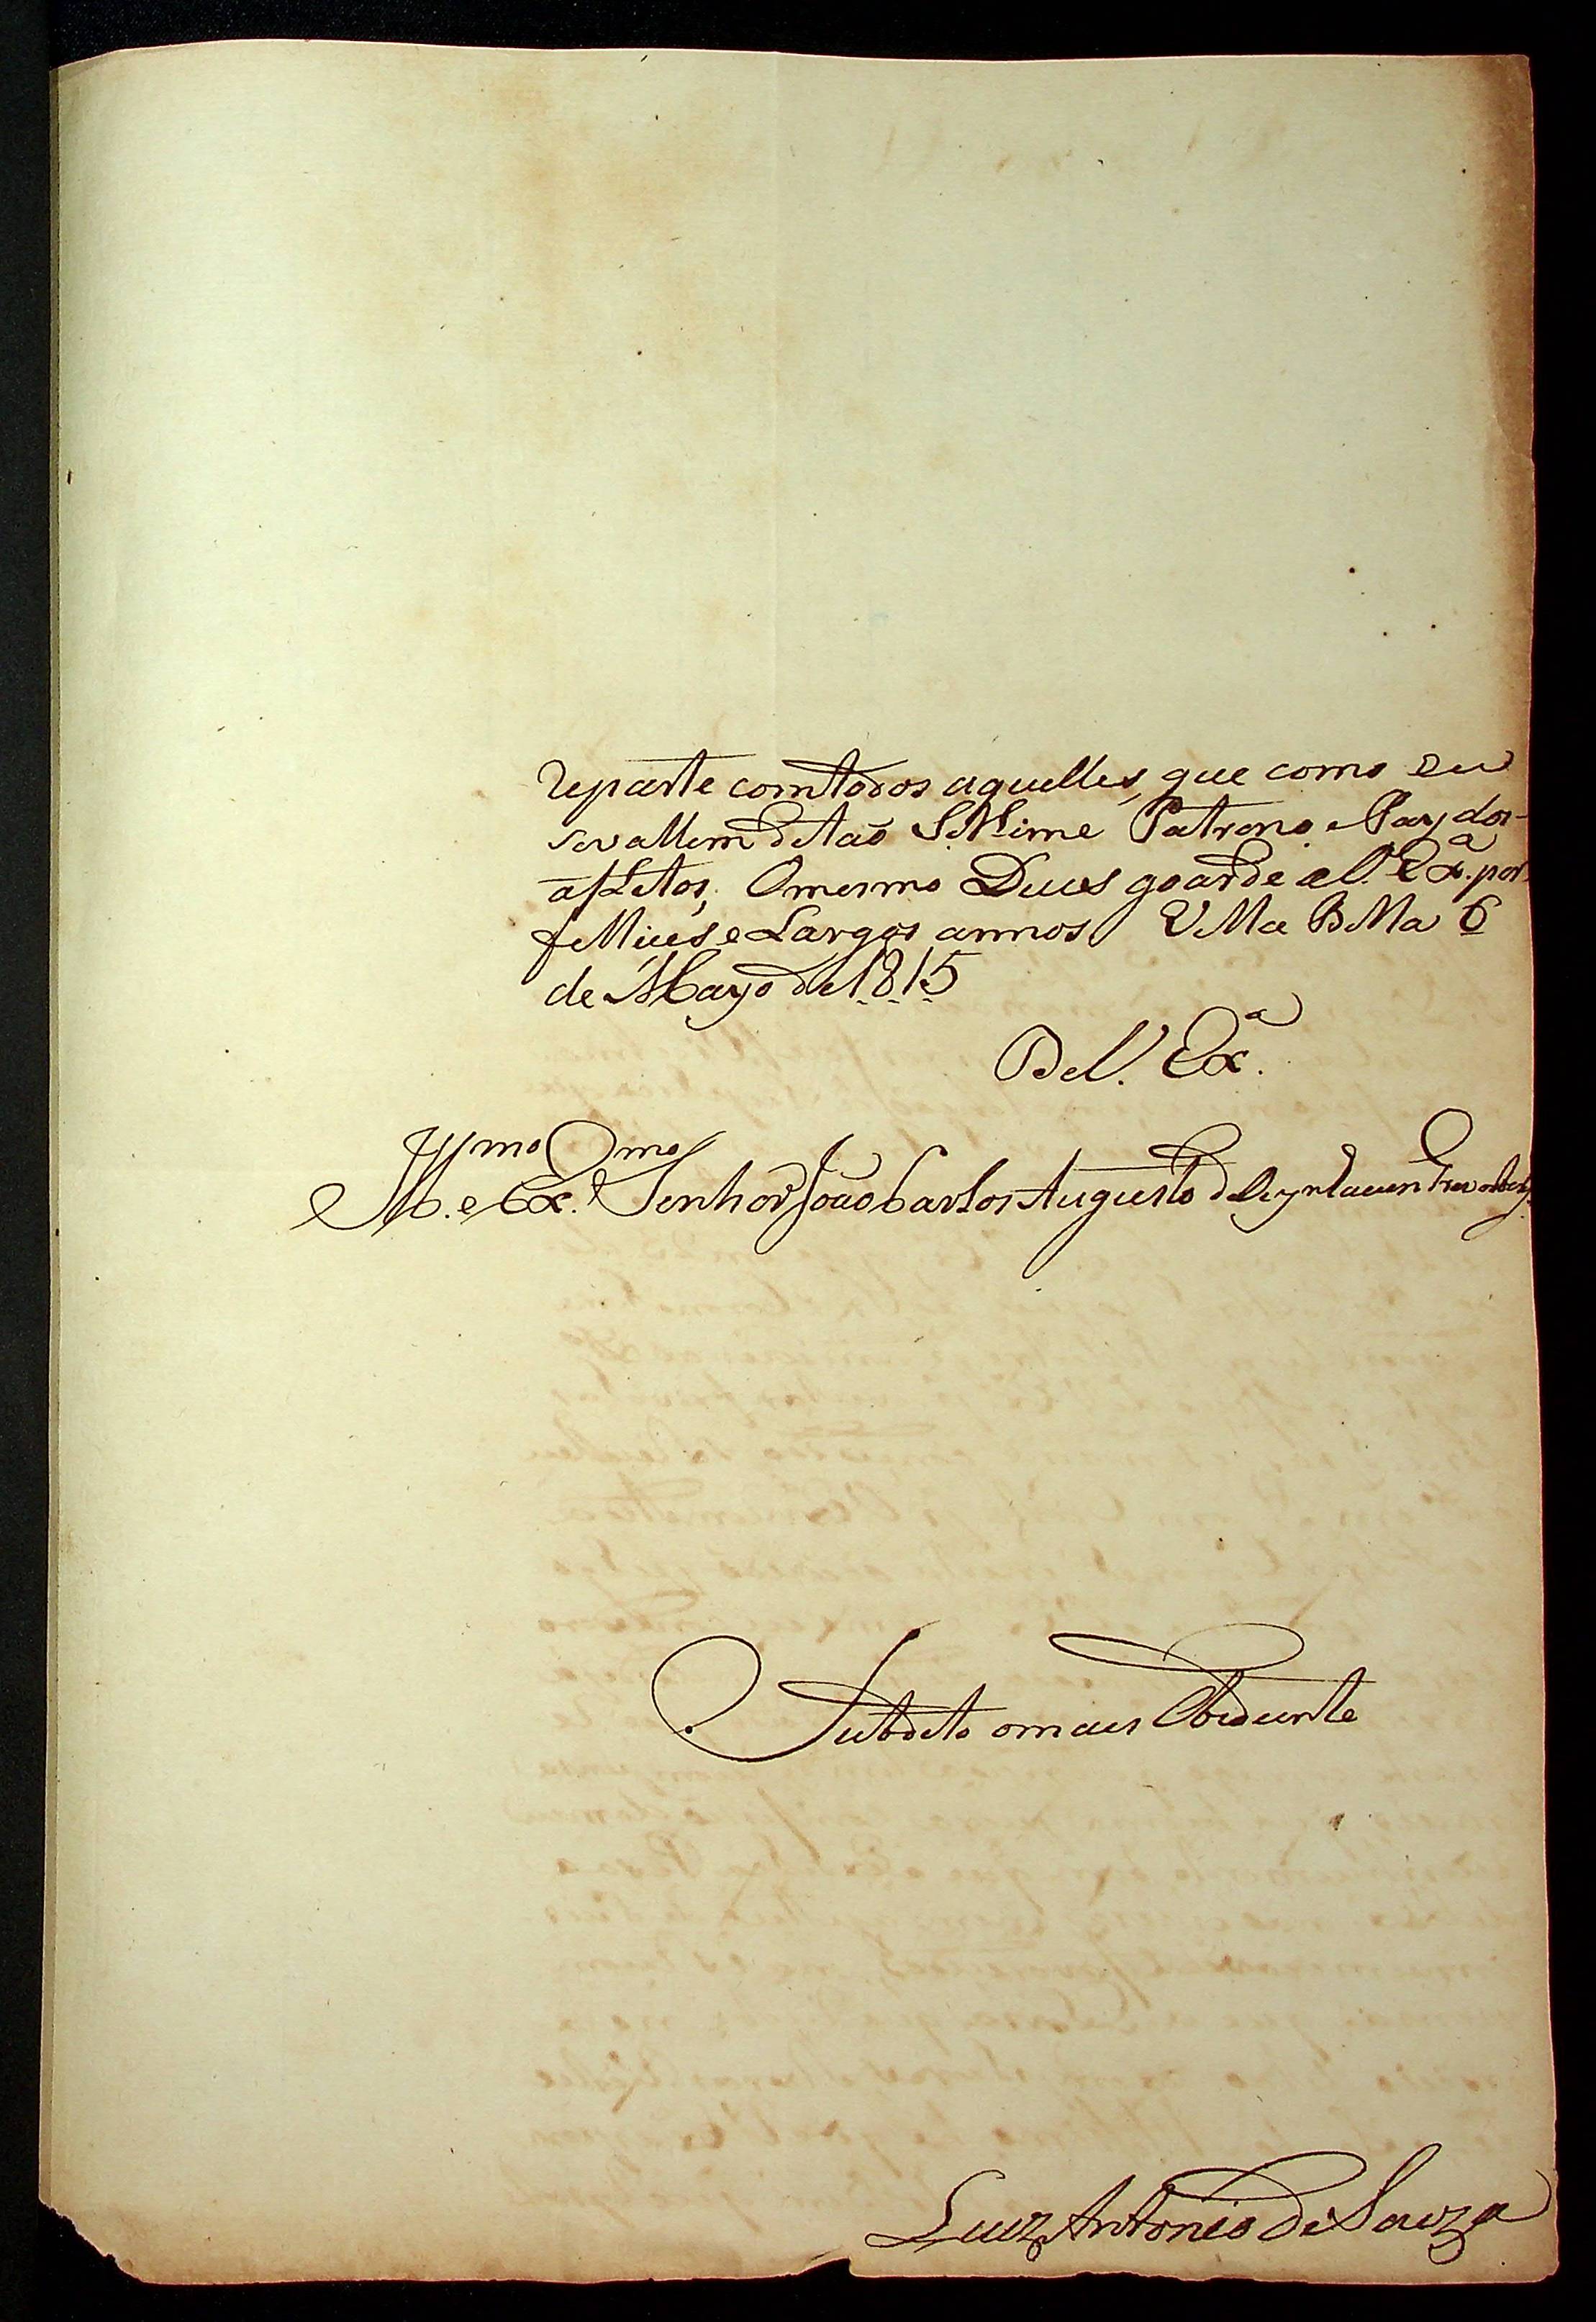 reparte comtodos aquelles, que como eu
sevallem detaõ Sublime Patrono e Pay dos
aflitos; Omesmo Deos goarde a V. Ex.ª por
fellices e Largos annos Villa Bella 6
de Mayo de 1815
De V. Ex.ª
Ill.mo e Ex.mo Senhor Joaõ Carlos Augusto de Oeynhausen Gravenberg.
Subdito omais Obediente
Luiz Antonio de Souza